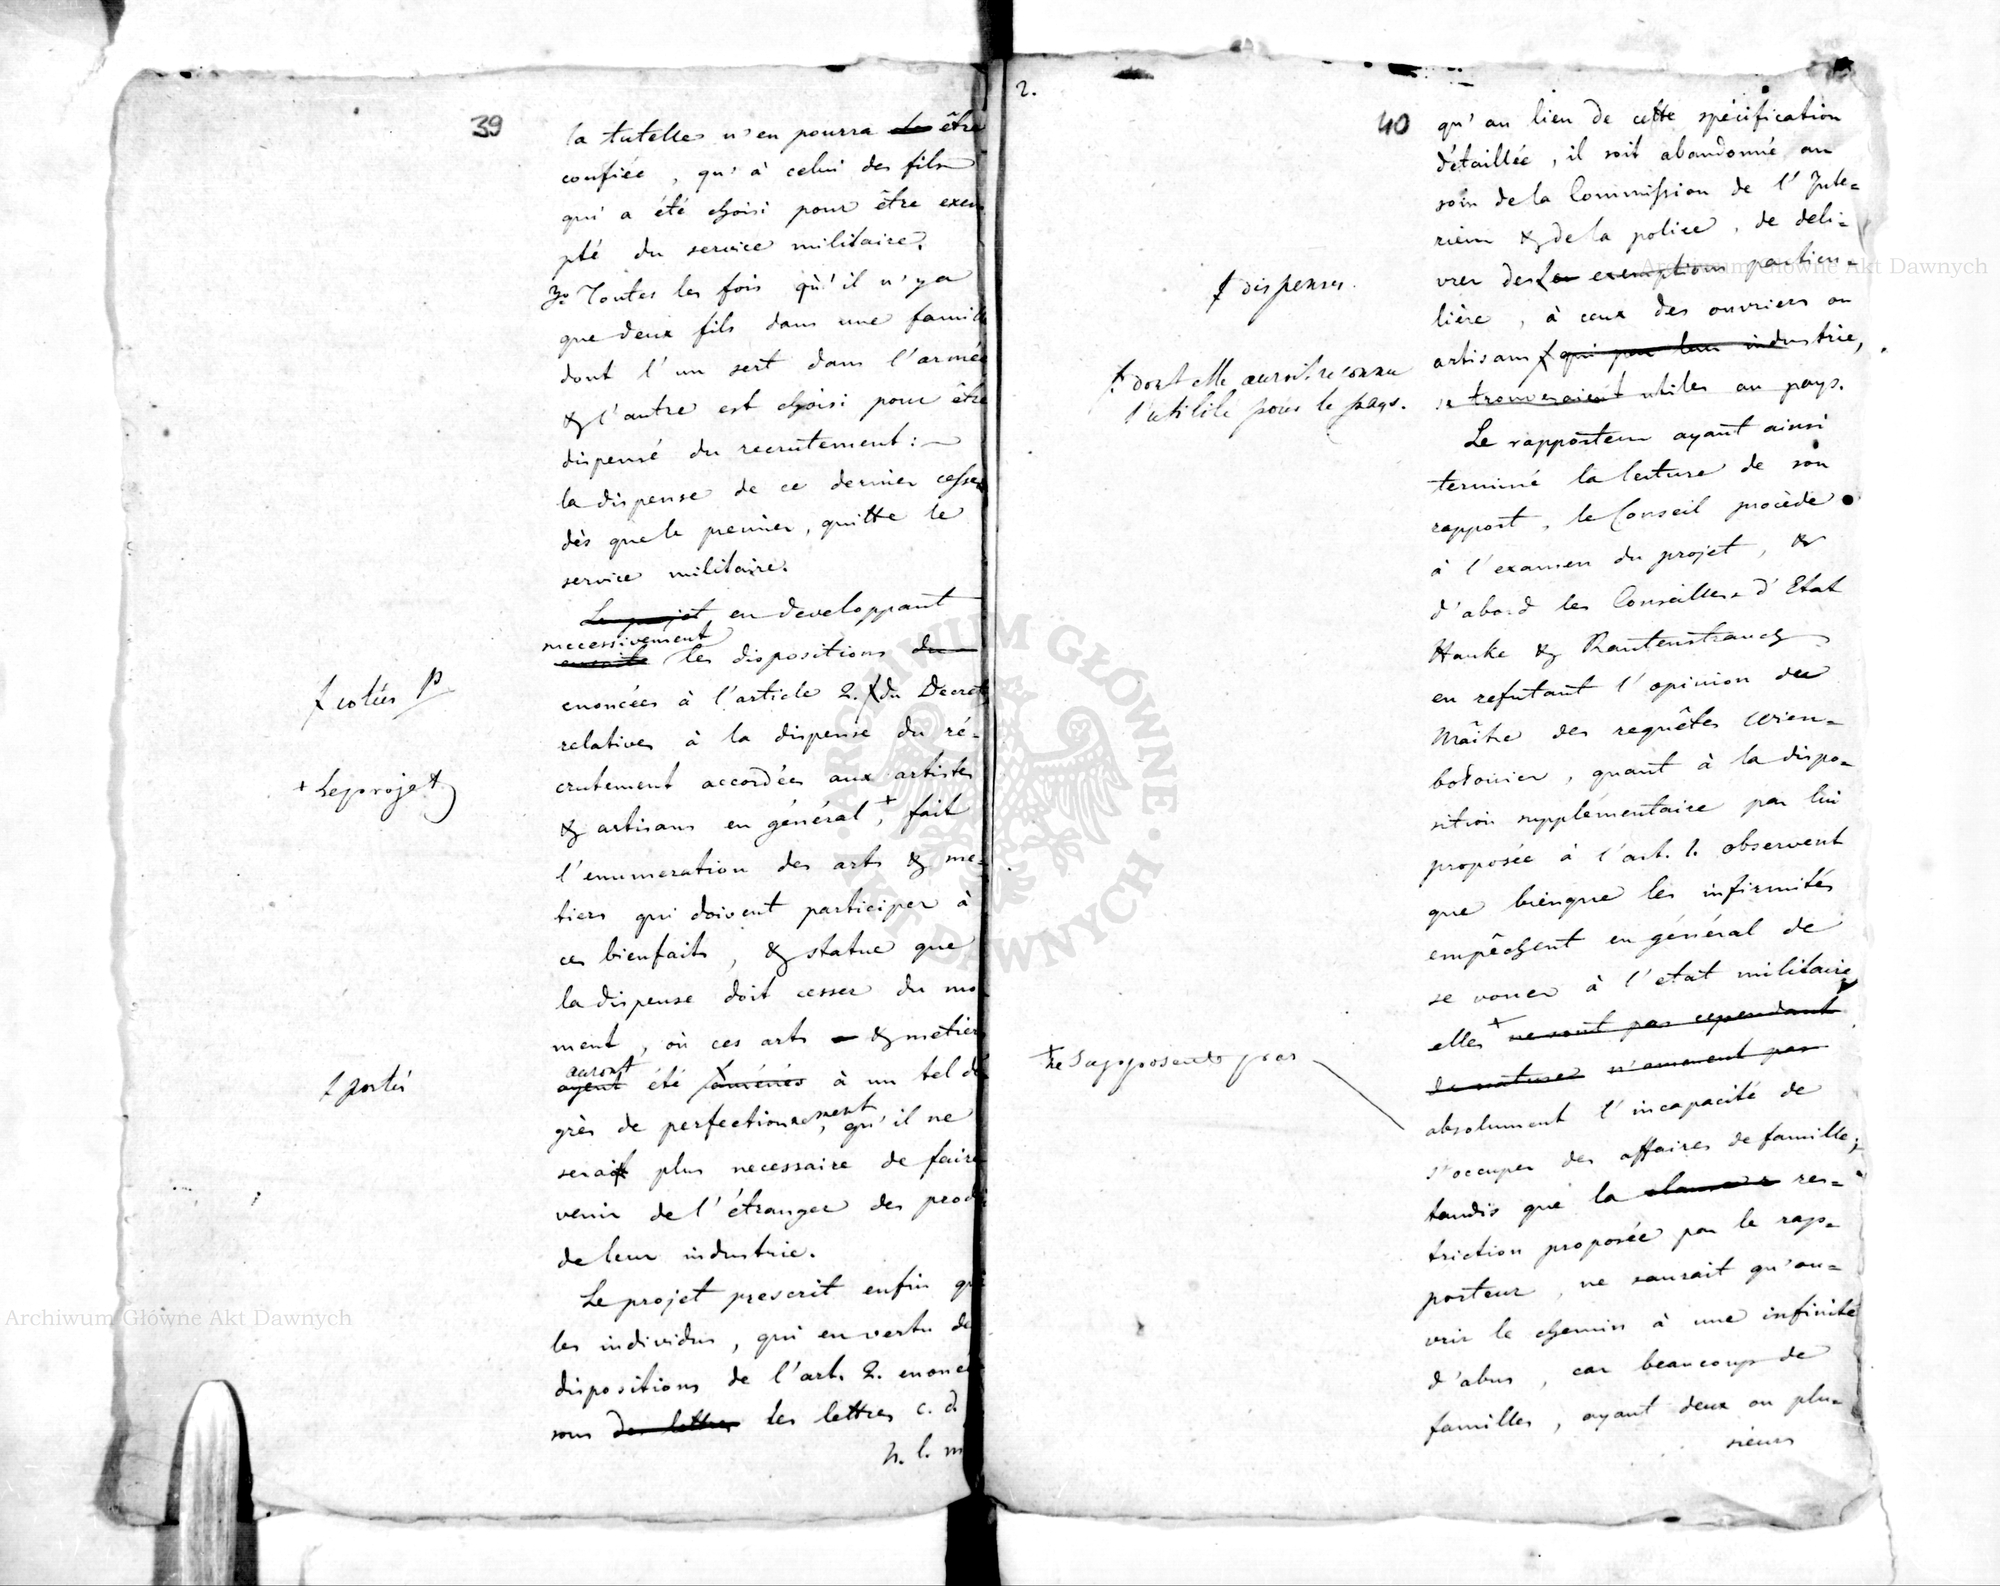 39
la tutelle n'en pourra de être
confiée, qu'à celui des fils
qui a été choisi pour être exem
pté du service militaire.
3o Toutes les fois qu'il n'y a
que deux fils dans une famill
dont l'un sert dans l'armée
& l'autre est choisi pour être
dispensé du recrutement: —
la dispense de ce dernier cesse
dès que le premier, quitte le
service militaire.
Le projet en developpant
successivement
ensuite les dispositions du
enoncées à l'article 2. du Decret
relatives à la dispense du ré-
crutement accordées aux artistes
& artisans en général, + fait
l'enumeration des arts & me-
tiers qui doivent participer à
ces bienfaits, & statue que
la dispense doit cesser du mo
ment, où ces arts & métiers
auront
ayent été amenés à un tel dé
grès de perfectionnement, qu'il ne
serait plus necessaire de faire
venir de l'étranger des prod
de leur industrie.
Le projet prescrit enfin qu
les individus, qui en vertu de
dispositions de l'art. 2. enoncé
sous des lettres les lettres c. d.
h. l. m
cotées
+ Le projet
portés
2.
40
qu'au lieu de cette spécification
détaillée, il soit abandonné au
soin de la Commission de l'Inte-
rieur & de la police, de deli-
vrer des les exemptions particu-
lière, à ceux des ouvriers ou
artisans qui par leur industrie,
se trouveraient utiles au pays.
Le rapporteur ayant ainsi
terminé la lecture de son
rapport, le Conseil procède
à l'examen du projet, &
d'abord les Conseillers d'Etat
Hauke & Rautenstrauch
en refutant l'opinion du
Maître des requêtes Wien-
botowicz, quant à la dispo-
sition supplémentaire par lui
proposée à l'art. 1. observent
que bienque les infirmités
empêchent en général de
se vouer à l'etat militaire
elles + ne sont pas cependant
de nature n'amenent pas
absolument l'incapacité de
s'occuper des affaires de famille;
tandis que la clause res-
triction proposée par le rap-
porteur, ne saurait qu'ou-
vrir le chemin à une infinité
d'abus, car beaucoup de
familles, ayant deux ou plu-
sieurs
dispenses.
dont elle aurait reconnu
l'utilité pour le pays.
+ ne supposent pas
ARCHIWUM GŁÓWNE AKT DAWNYCH
Archiwum Główne Akt Dawnych
Archiwum Główne Akt Dawnych